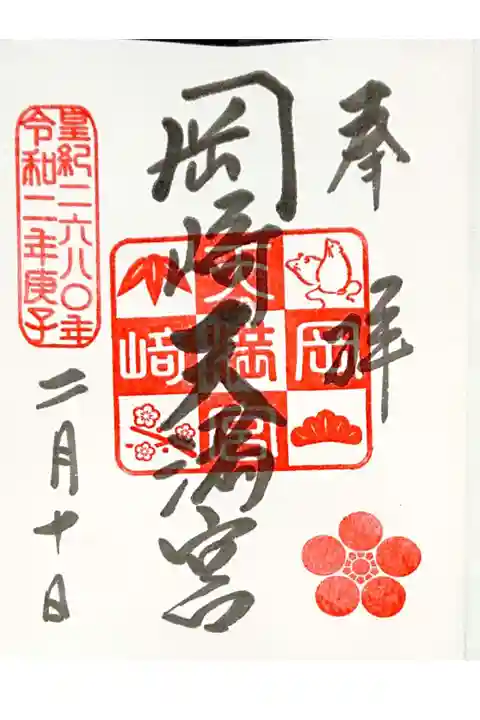 奉拝
岡崎天満宮
岡
天満宮
崎
皇紀二六八〇年
令和二年庚子
二月十日